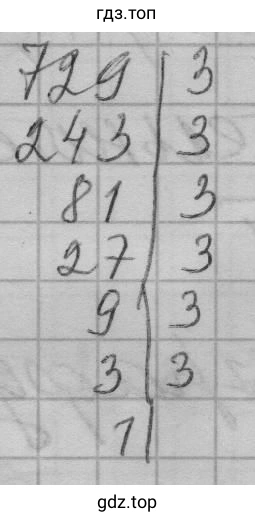 гдз.топ
729 | 3
243 | 3
81 | 3
27 | 3
9 | 3
3 | 3
1 |
gdz.top